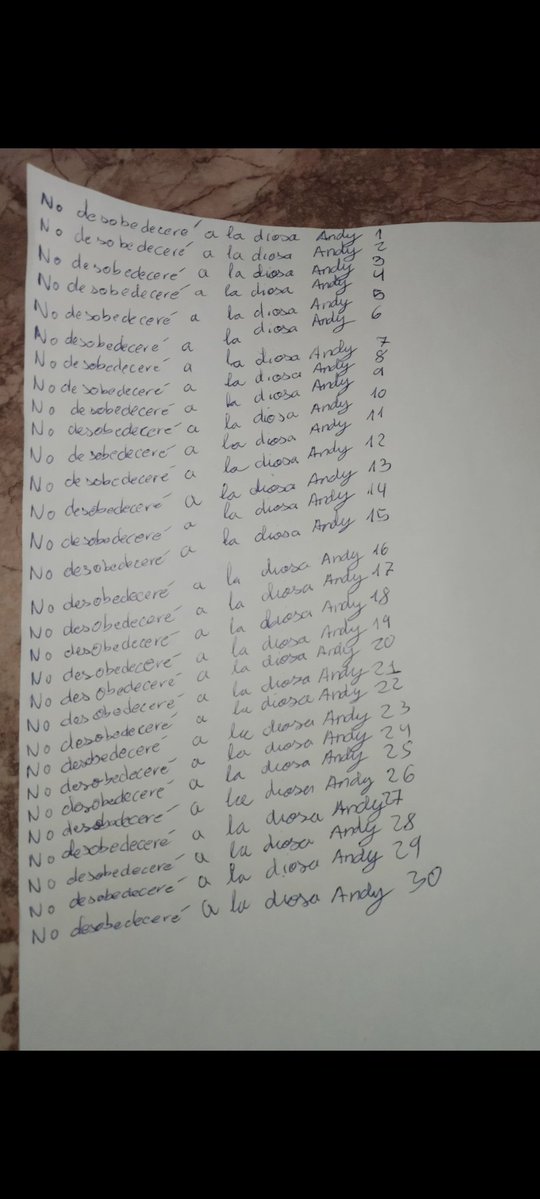 No desobedeceré a la diosa Andy 1
No desobedeceré a la diosa Andy 2
No desobedeceré a la diosa Andy 3
No desobedeceré a la diosa Andy 4
No desobedeceré a la diosa Andy 5
No desobedeceré a la diosa Andy 6
No desobedeceré a la diosa Andy 7
No desobedeceré a la diosa Andy 8
No desobedeceré a la diosa Andy 9
No desobedeceré a la diosa Andy 10
No desobedeceré a la diosa Andy 11
No desobedeceré a la diosa Andy 12
No desobedeceré a la diosa Andy 13
No desobedeceré a la diosa Andy 14
No desobedeceré a la diosa Andy 15
No desobedeceré a la diosa Andy 16
No desobedeceré a la diosa Andy 17
No desobedeceré a la diosa Andy 18
No desobedeceré a la diosa Andy 19
No desobedeceré a la diosa Andy 20
No desobedeceré a la diosa Andy 21
No desobedeceré a la diosa Andy 22
No desobedeceré a la diosa Andy 23
No desobedeceré a la diosa Andy 24
No desobedeceré a la diosa Andy 25
No desobedeceré a la diosa Andy 26
No desobedeceré a la diosa Andy 27
No desobedeceré a la diosa Andy 28
No desobedeceré a la diosa Andy 29
No desobedeceré a la diosa Andy 30